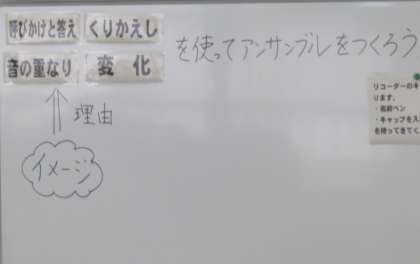 呼びかけと答え くりかえし
音の重なり 変化 を使ってアンサンブルをつくろう
理由
イメージ
リコーダーのキ
ります。
・名前ペン
・キャップを入
を持ってきてく